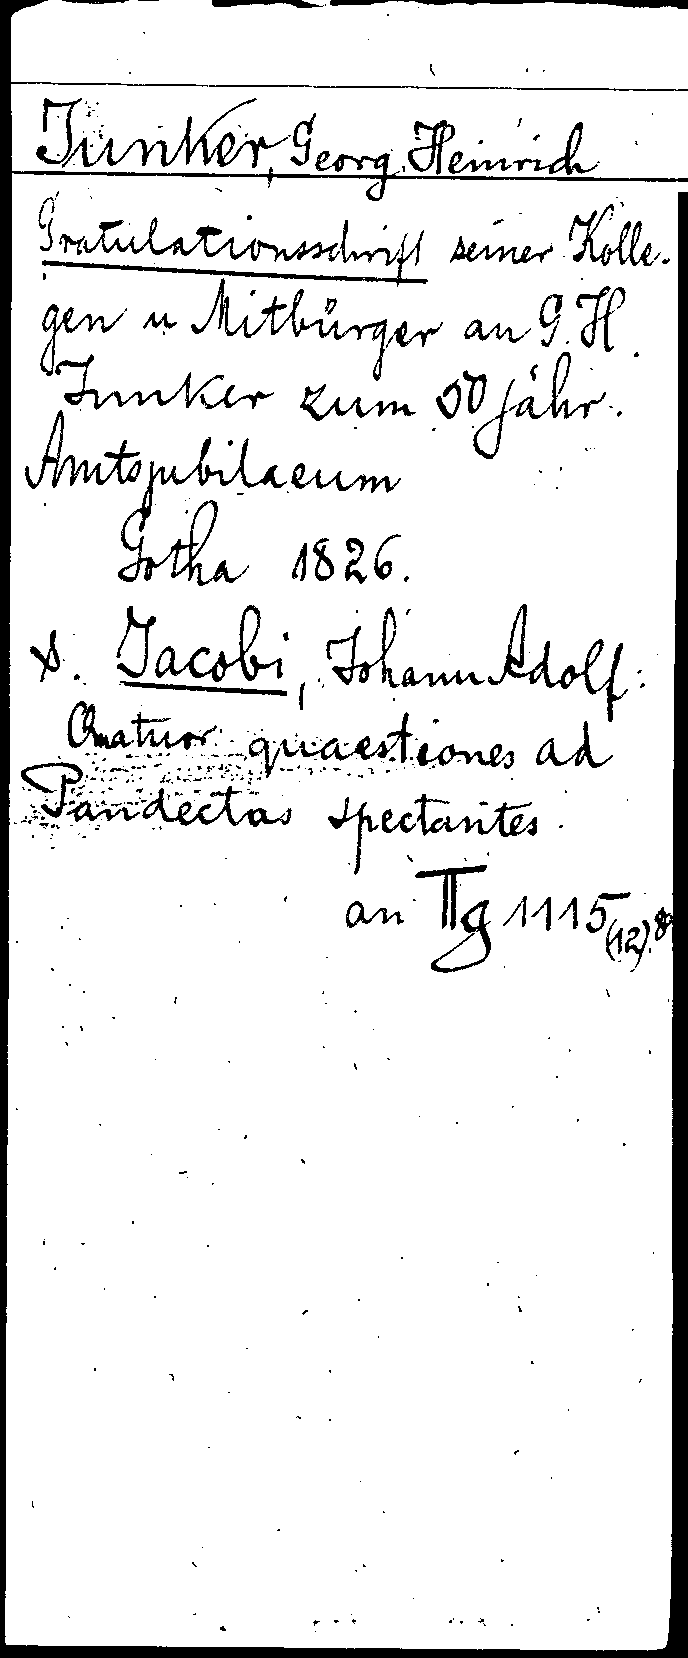 Junker, Georg Heinrich
Gratulationsschrift seiner Kolle-
gen u Mitbürger an G. H.
Junker zum 50jähr.
Amtsjubilaeum
Gotha 1826.
s. Jacobi, Johann Adolf:
Quatuor quaestiones ad
Pandectas spectantes.
an IIg 1115 (12). 8